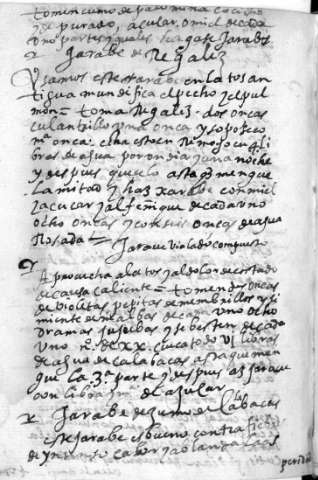 tomen çumo de
depurado, açucar, o miel de cada
uno partes yguales hagase Jarabe
Jarabe de Regaliz
Usamos este Jarabe en la tos an
tigua mundifica el pecho y el pul
mon = toma Regaliz dos onças
culantrillo una onça ysopo seco
mª onça. echa esto en Remojo en 4 li
bras de agua por un dia y una noche
y despues cuezelo asta que mengue
la mitad y haz xarabe con miel
y açucar y alfeñique de cada uno
ocho onças y con seis onças de agua
Rosada =
Jaraue violado compuesto
Aprouecha a la tos y al dolor de costado
de causa caliente = tomen dos onças
de violetas pepitas de membrillos y si
miente de malbas de cada uno ocho
dramas Jujubas y sebesten de cada
uno nº XX. cueçalo en VI libras
de agua de calabaças asta que men
gue la 3ª parte y despues az Jaraue
con libra de açucar
Jarabe de çumo de calabaças
este Jarabe es bueno contra
de